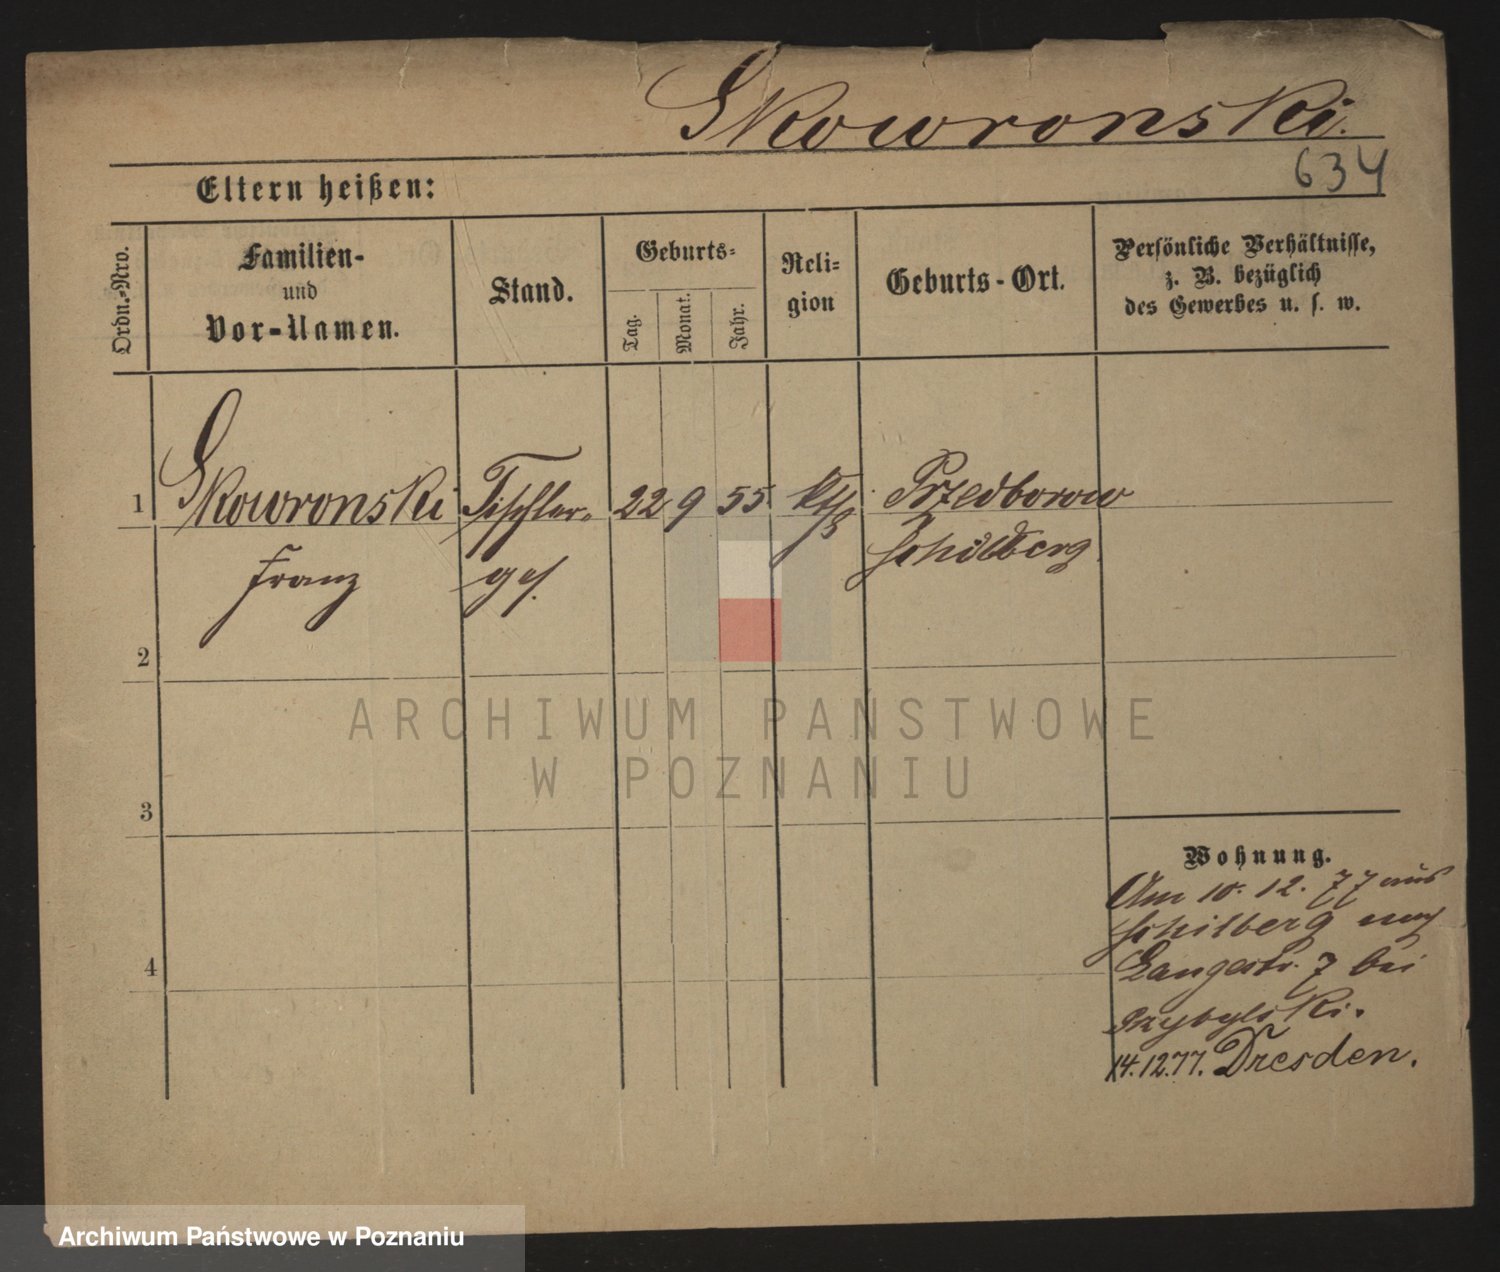 Skowronski.
634
Eltern heißen:
Ordn.-Nro.
Familien-
und
Vor-Namen.
Stand.
Geburts-
Tag.
Monat.
Jahr.
Reli-
gion
Geburts-Ort.
Persönliche Verhältnisse,
z. B. bezüglich
des Gewerbes u. s. w.
1
Skowronski
Franz
Tischler-
ges.
22 9 55
kth
Przedborow
Schildberg
2
3
4
Wohnung.
Am 10. 12. 77 aus
Schilberg nach
Langestr. 7 bei
Przybylski.
14.12.77. Dresden.
ARCHIWUM PAŃSTWOWE
W POZNANIU
Archiwum Państwowe w Poznaniu